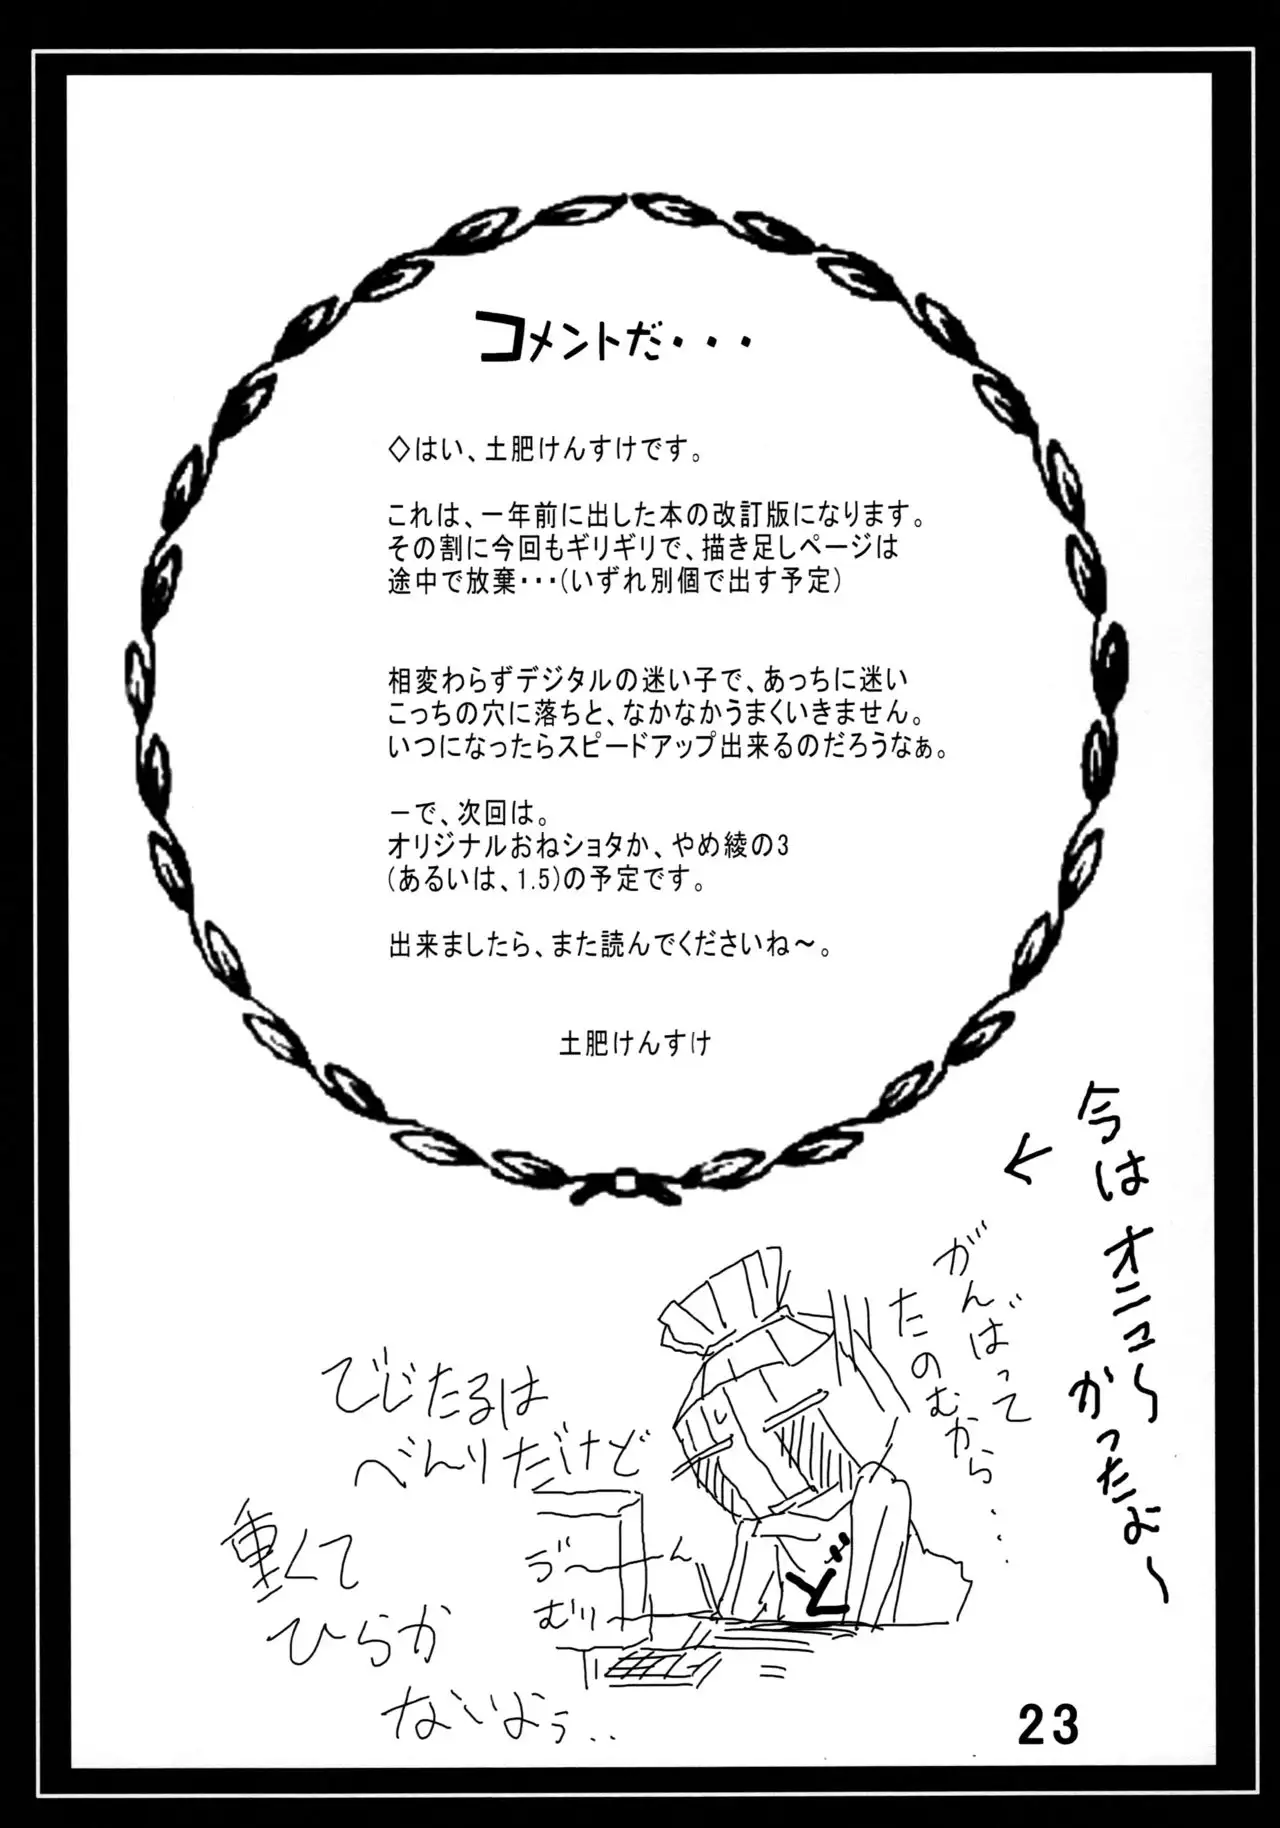 コメントだ・・・
◇はい、土肥けんすけです。
これは、一年前に出した本の改訂版になります。
その割に今回もギリギリで、描き足しページは
途中で放棄・・・(いずれ別個で出す予定)
相変わらずデジタルの迷い子で、あっちに迷い
こっちの穴に落ちと、なかなかうまくいきません。
いつになったらスピードアップ出来るのだろうなぁ。
－で、次回は。
オリジナルおねショタか、やめ綾の3
(あるいは、1.5)の予定です。
出来ましたら、また読んでくださいね～。
土肥けんすけ
今はオニューだ
かったよ～
がんばって
たのむから・・・
でじたるは
べんりだけど
重くて
ひらか
ないよぅ・・
ヴ～～ん
むり～
ど
23